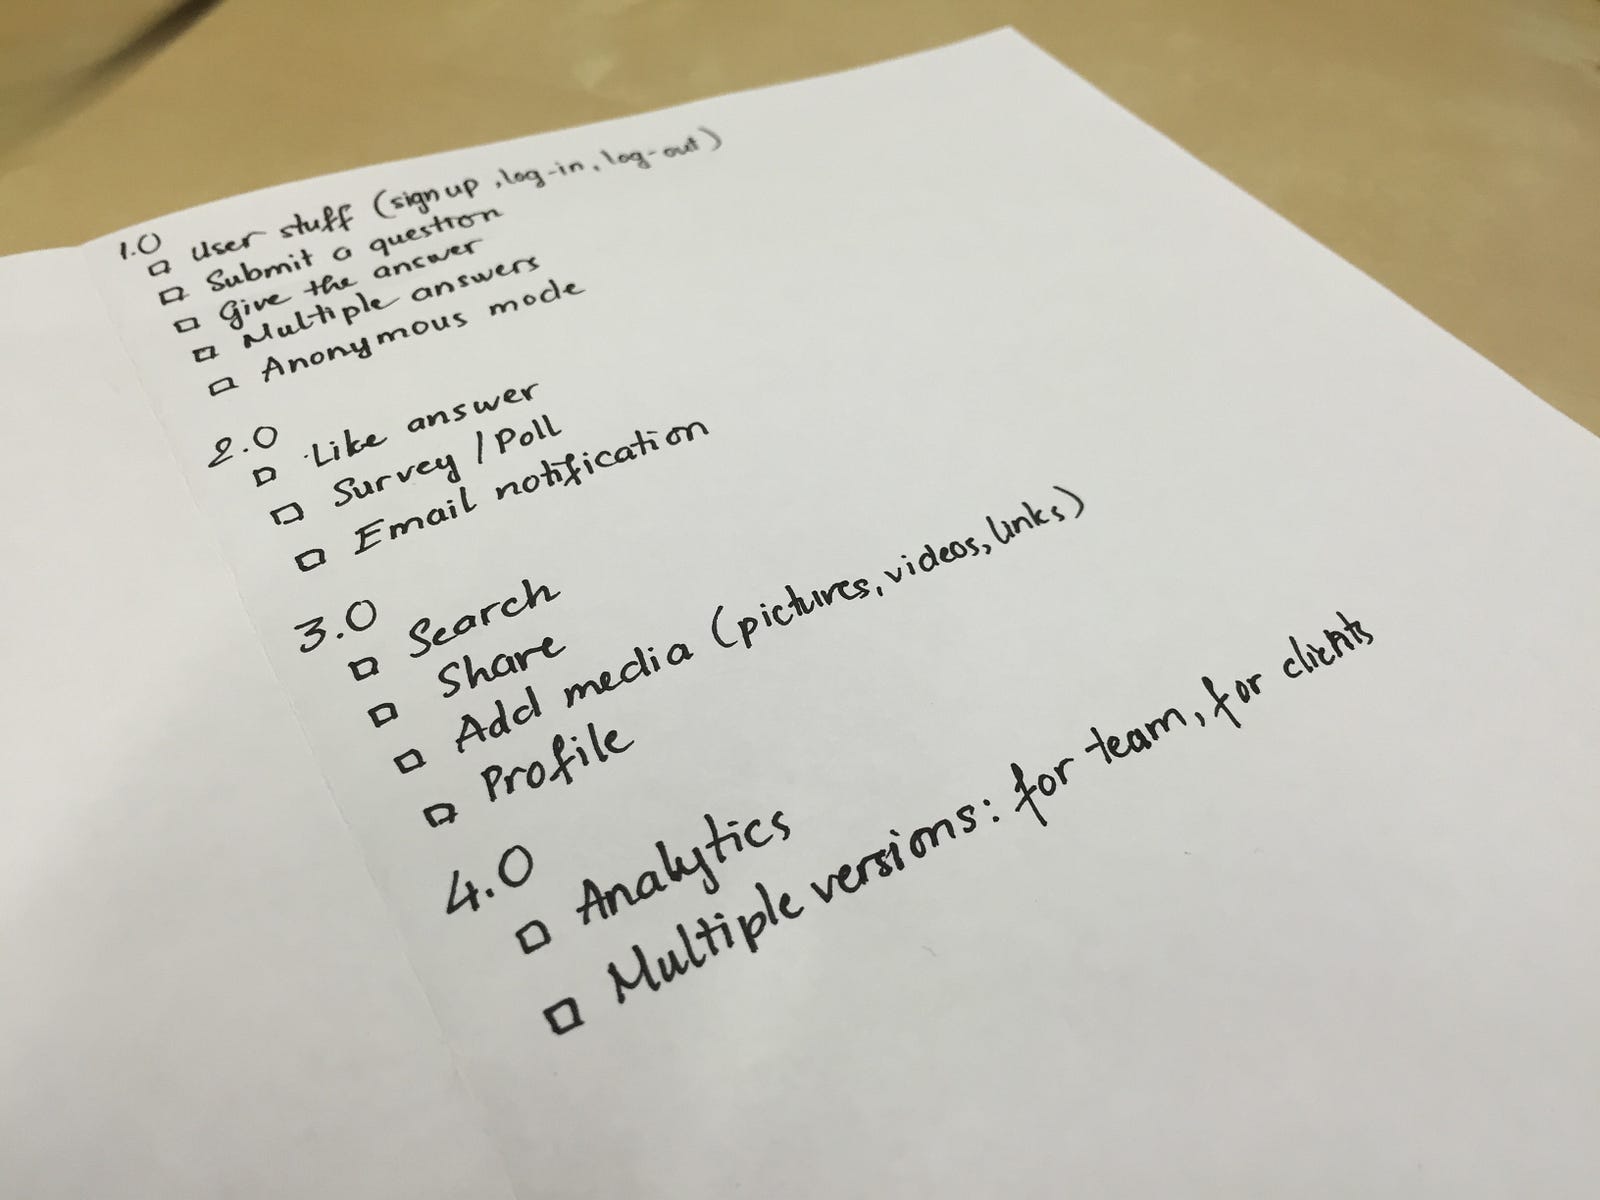 1.0
User stuff (sign up, log-in, log-out)
Submit a question
Give the answer
Multiple answers
Anonymous mode
2.0
Like answer
Survey / Poll
Email notification
3.0
Search
Share
Add media (pictures, videos, links)
Profile
4.0
Analytics
Multiple versions: for team, for clients